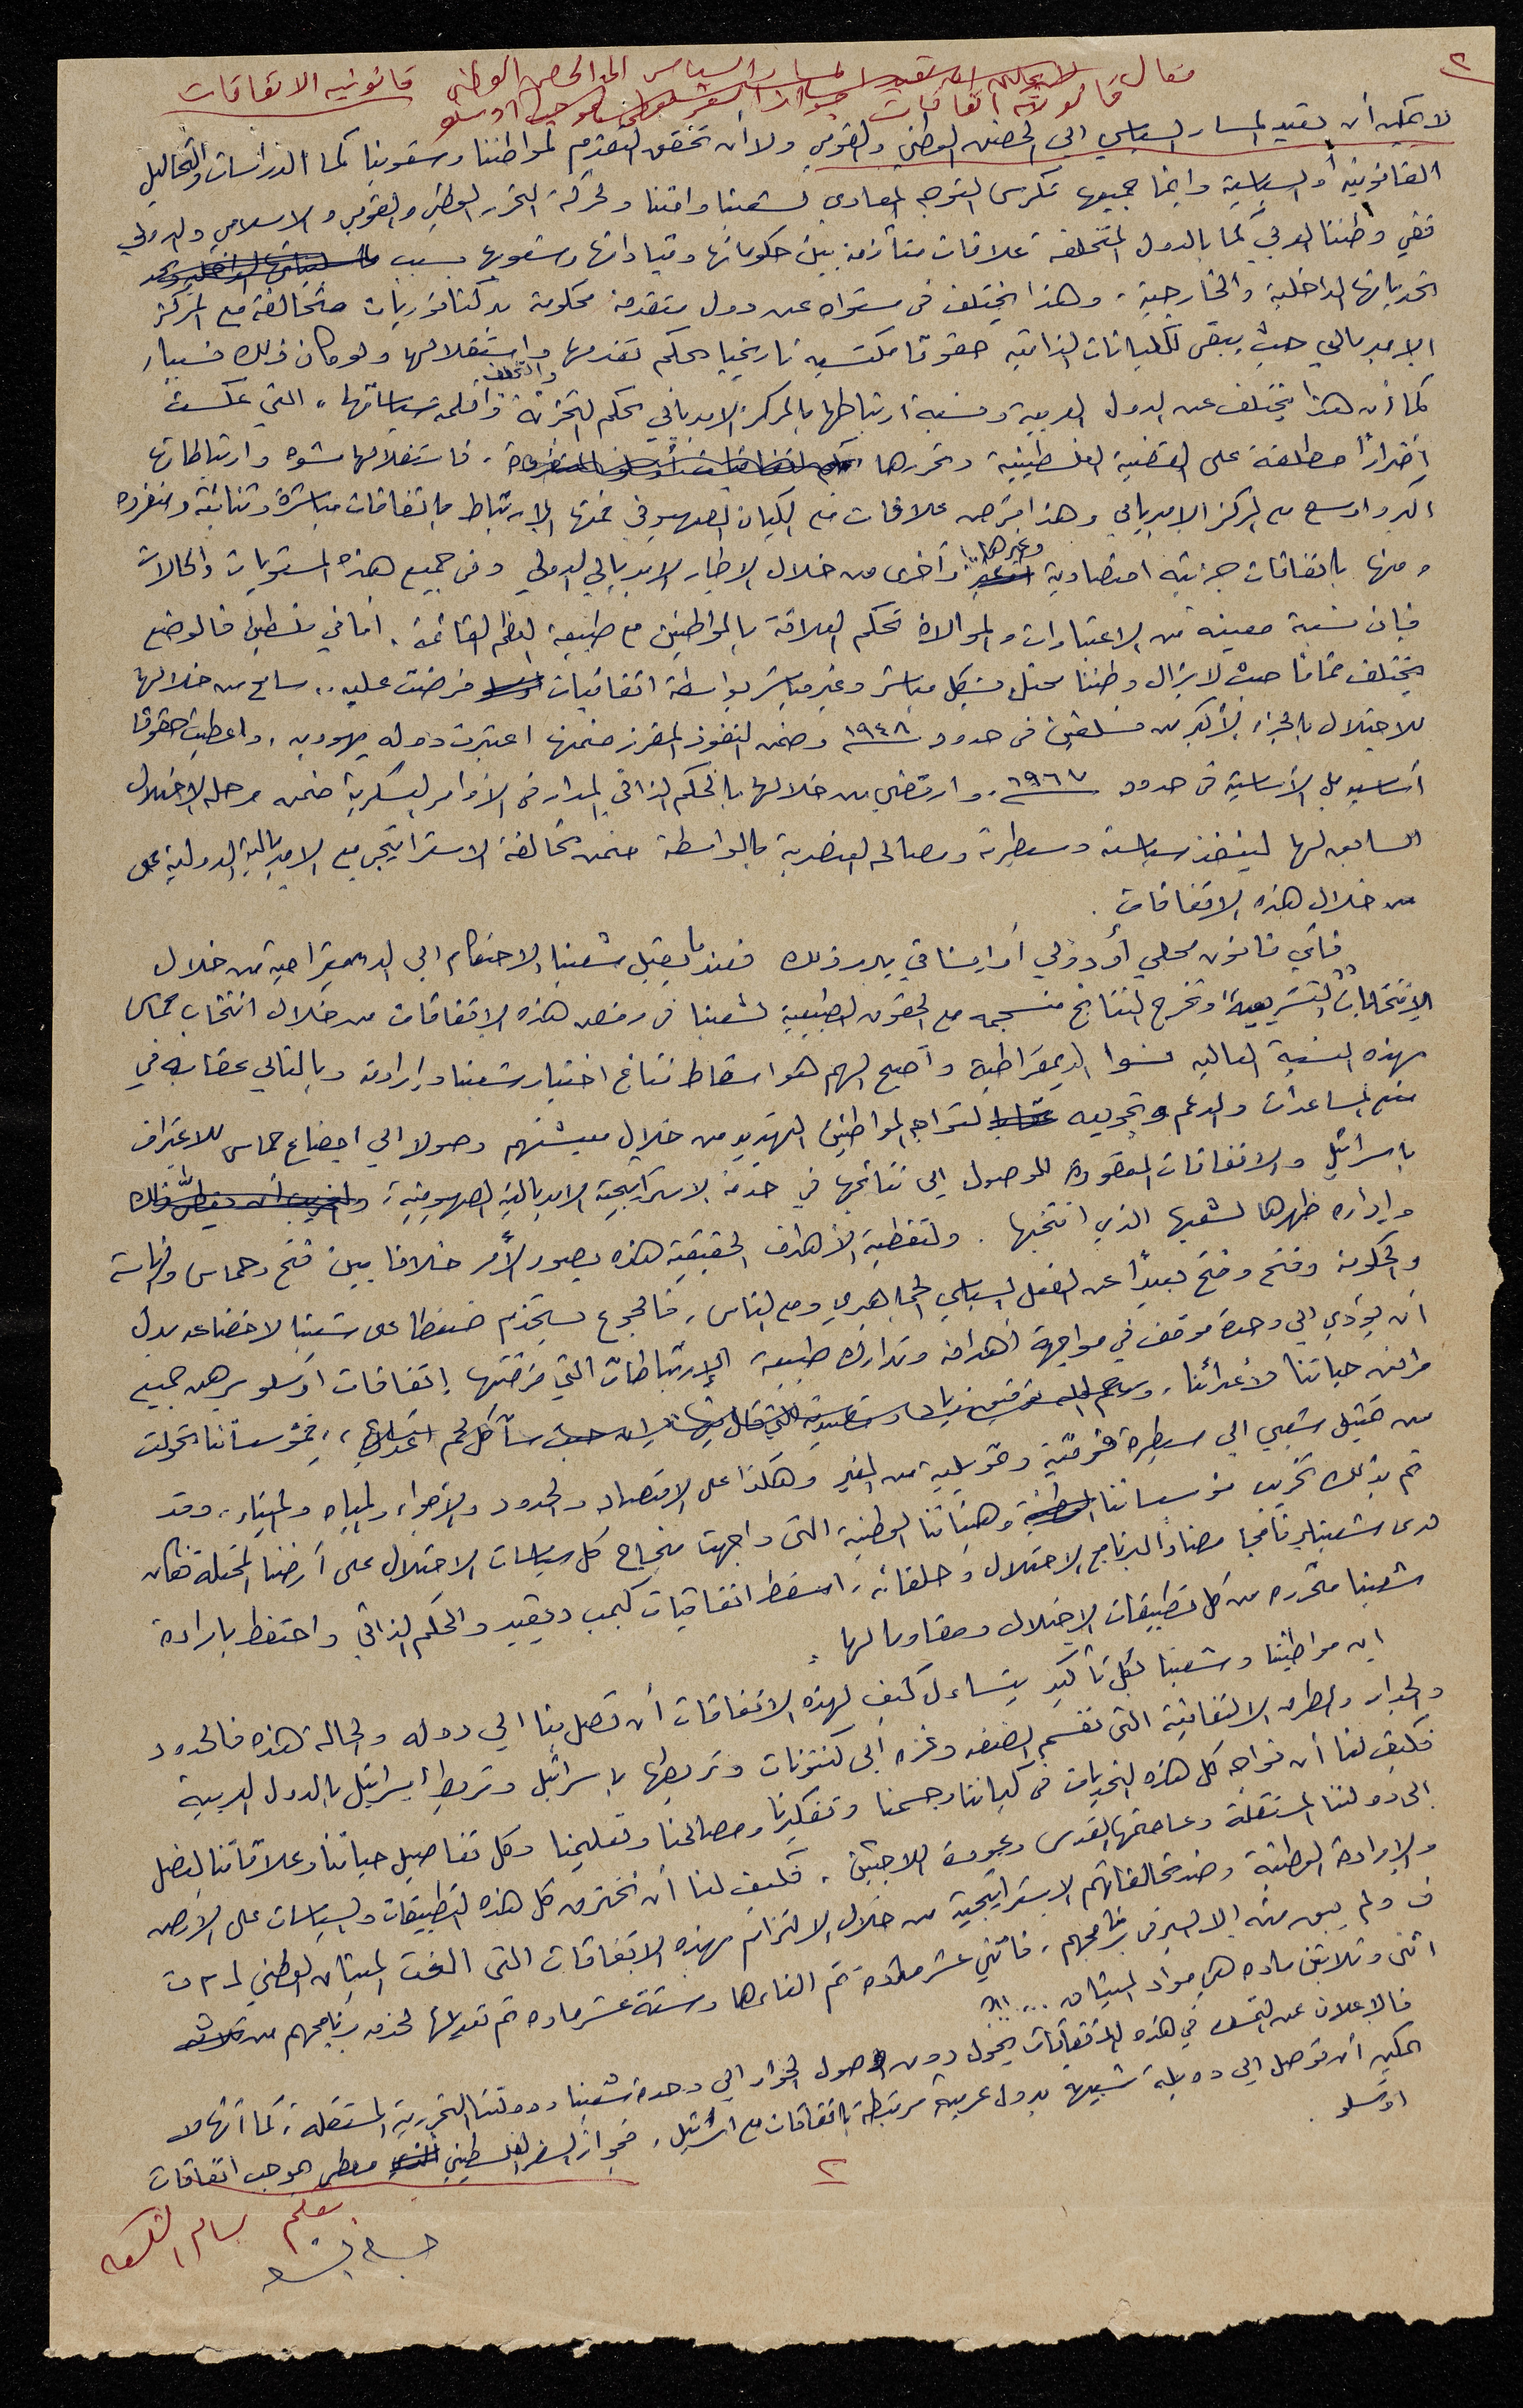 ٢
مقال
قانونية الاتفاقات
لا يمكن أن يعيد المسار السياسي الى الحضن الوطني والقومي ولا أن تحقق التقدم لمواطننا وشعوبنا كما الدراسات والتحاليل
القانونية أو السياسية وانما جميعها تكرس التوجه المعادي لشعبنا وامتنا ولحركة التحرر الوطني والقومي والاسلامي والدولي
ففي وطننا العربي كما بالدول المتخلفة علاقات متأزمة بين حكوماتها وقياداتها وشعوبها بسبب
تحدياتها الداخلية والخارجية. وهذا يختلف في مستواه عن دول متقدمة محكومة بدكتاتوريات متحالفة مع المركز
الامبريالي حيث يبقى للكيانات الذاتية حقوقا مكتسبة تاريخيا بحكم تقدمها واستقلالها ولو كان ذلك نسبيا.
كما أن هذا يختلف عن الدول العربية ونسبة ارتباطها بالمركز الامبريالي بحكم التجزئة والتخلف وأقلمة سياساتها، التي عكست
أضراراً مطلقة على القضية الفلسطينية وتحررها. فاستقلالها مشوه وارتباطاتها
أكبر وأوسع مع المركز الامبريالي وهذا يفرض علاقات مع الكيان الصهيوني فمنها الارتباط باتفاقات مباشرة وثنائية ومنفردة
ومنها باتفاقات جزئية اقتصادية وغيرها.. وأخرى من خلال الاطار الامبريالي الدولي وفي جميع هذه المستويات والحالات
فإن نسبة معينة من الاعتبارات والموالاة تحكم العلاقة بالمواطنين مع طبيعة النظم القائمة. أما في فلسطين فالوضع
يختلف تماما حيث لا يزال وطننا محتل بشكل مباشر وغير مباشر بواسطة اتفاقيات فرضت عليه.. سامح من خلالها
للاحتلال بالجزء الأكبر من فلسطين في حدود ١٩٤٨ وضمن النفوذ المقرر ضمنها اعتبرت دولة يهودية، وأعطيت حقوقا
أساسية بل الأساسية في حدود ١٩٦٧. وارتضي من خلالها بالحكم الذاتي المدار في الأوامر العسكرية ضمن مرحلة الاحتلال
السابق لها لينفذ سياسته وسيطرته ومصالحه العنصرية بالواسطة ضمن تحالفه الاستراتيجي مع الامبريالية الدولية
من خلال هذه الاتفاقات.
فأي قانون محلي أو دولي أو انساني يبرر ذلك فعندما يقبل شعبنا الاحتكام الى الديمقراطية من خلال
الانتخابات "التشريعية" وتخرج النتائج منسجمه مع الحقوق الطبيعية لشعبنا في رفض هذه الاتفاقات من خلال انتخاب حماس
بهذه النسبة العاليه نسوا الديمقراطية وأصبح الهم هو اسقاط نتائج اختيار شعبنا وإرادته وبالتالي عقابه في
منع المساعدات والدعم وتجويعه لتواجه المواطنين التهديد من خلال معيشتهم وصولا الى اخضاع حماس للاعتراف
بإسرائيل والاتفاقات المعقودة للوصول إلى نتائجها في خدمة الاستراتيجية الامبريالية الصهيونية،
وإداره ظهرها لشعبها الذي انتخبها. ولتغطية الأهداف الحقيقية هذه يصور الأمر خلافا بين فتح وحماس والرئاسة
والحكومة وفتح وفتح بعيداً عن الفعل السياسي الجماهيري ومع الناس، فالجوع يستخدم ضغطا على شعبنا لاخضاعه بدل
أن يؤدي الى وحدة موقف في مواجهة أهدافه وتدارك طبيعة الارتباطات التي فرضتها اتفاقات اوسلو برهن جميع
مرافق حياتنا لأعدائنا، فمؤسساتنا تحولت
من تمثيل شعبي الى سيطرة فوقية وتمويلية من الغير وهكذا على الاقتصاد والحدود والأجواء والمياه والميناء، وقد
تم بذلك تخريب مؤسساتنا وهيئاتنا الوطنية التي واجهت بنجاح كل سياسات الاحتلال على أرضنا المحتلة فكان
لدى شعبنا برنامجا مضادا لبرنامج الاحتلال وحلفائه، اسقط اتفاقيات كمب ديفيد والحكم الذاتي واحتفظ بارادة
شعبنا متحررة من كل تطبيقات الاحتلال ومقاوما لها.
إن مواطننا وشعبنا بكل تأكيد يتساءل كيف لهذه الاتفاقات أن تصل بنا الى دوله والحالة هذه فالحدود
والجدار والطرق الالتفافية التي تقسم الضفه وغزه الى كنتونات وتربطها باسرائيل وتربط اسرائيل بالدول العربية
فكيف لنا أن نواجه كل هذه التحديات في كياننا وجسمنا وتفكيرنا ومصالحنا وتعليمنا وكل تفاصيل حياتنا وعلاقاتنا لنصل
الى دولتنا المستقلة وعاصمتها القدس وعودة اللاجئين. فكيف لنا أن نخترق كل هذه التطبيقات والسياسات على الارض
والارادة الوطنية وضد تحالفاتهم الاستراتيجية من خلال الالتزام بهذه الاتفاقات التي الغت الميثاق الوطني لـ م ت
ف ولم يبق منه إلا السير في برنامجهم، فاثني عشر مادة تم الغاءها وستة عشر ماده تم تعديلها لخدمة برنامجهم من
اثنى وثلاثين ماده هي مواد الميثاق ...!!؟
فالاعلان عن التمسك في هذه الاتفاقيات يحول دون وصول الحوار الى وحدة شعبنا ودولتنا التحررية المستقلة، كما أنها لا
يمكن أن توصل الى دويلة شبيهة بدول عربية مرتبطة باتفاقات مع اسرائيل، فجواز السفر الفلسطيني معطى بموجب اتفاقات
اوسلو.
٢
بقلم بسام الشكعه